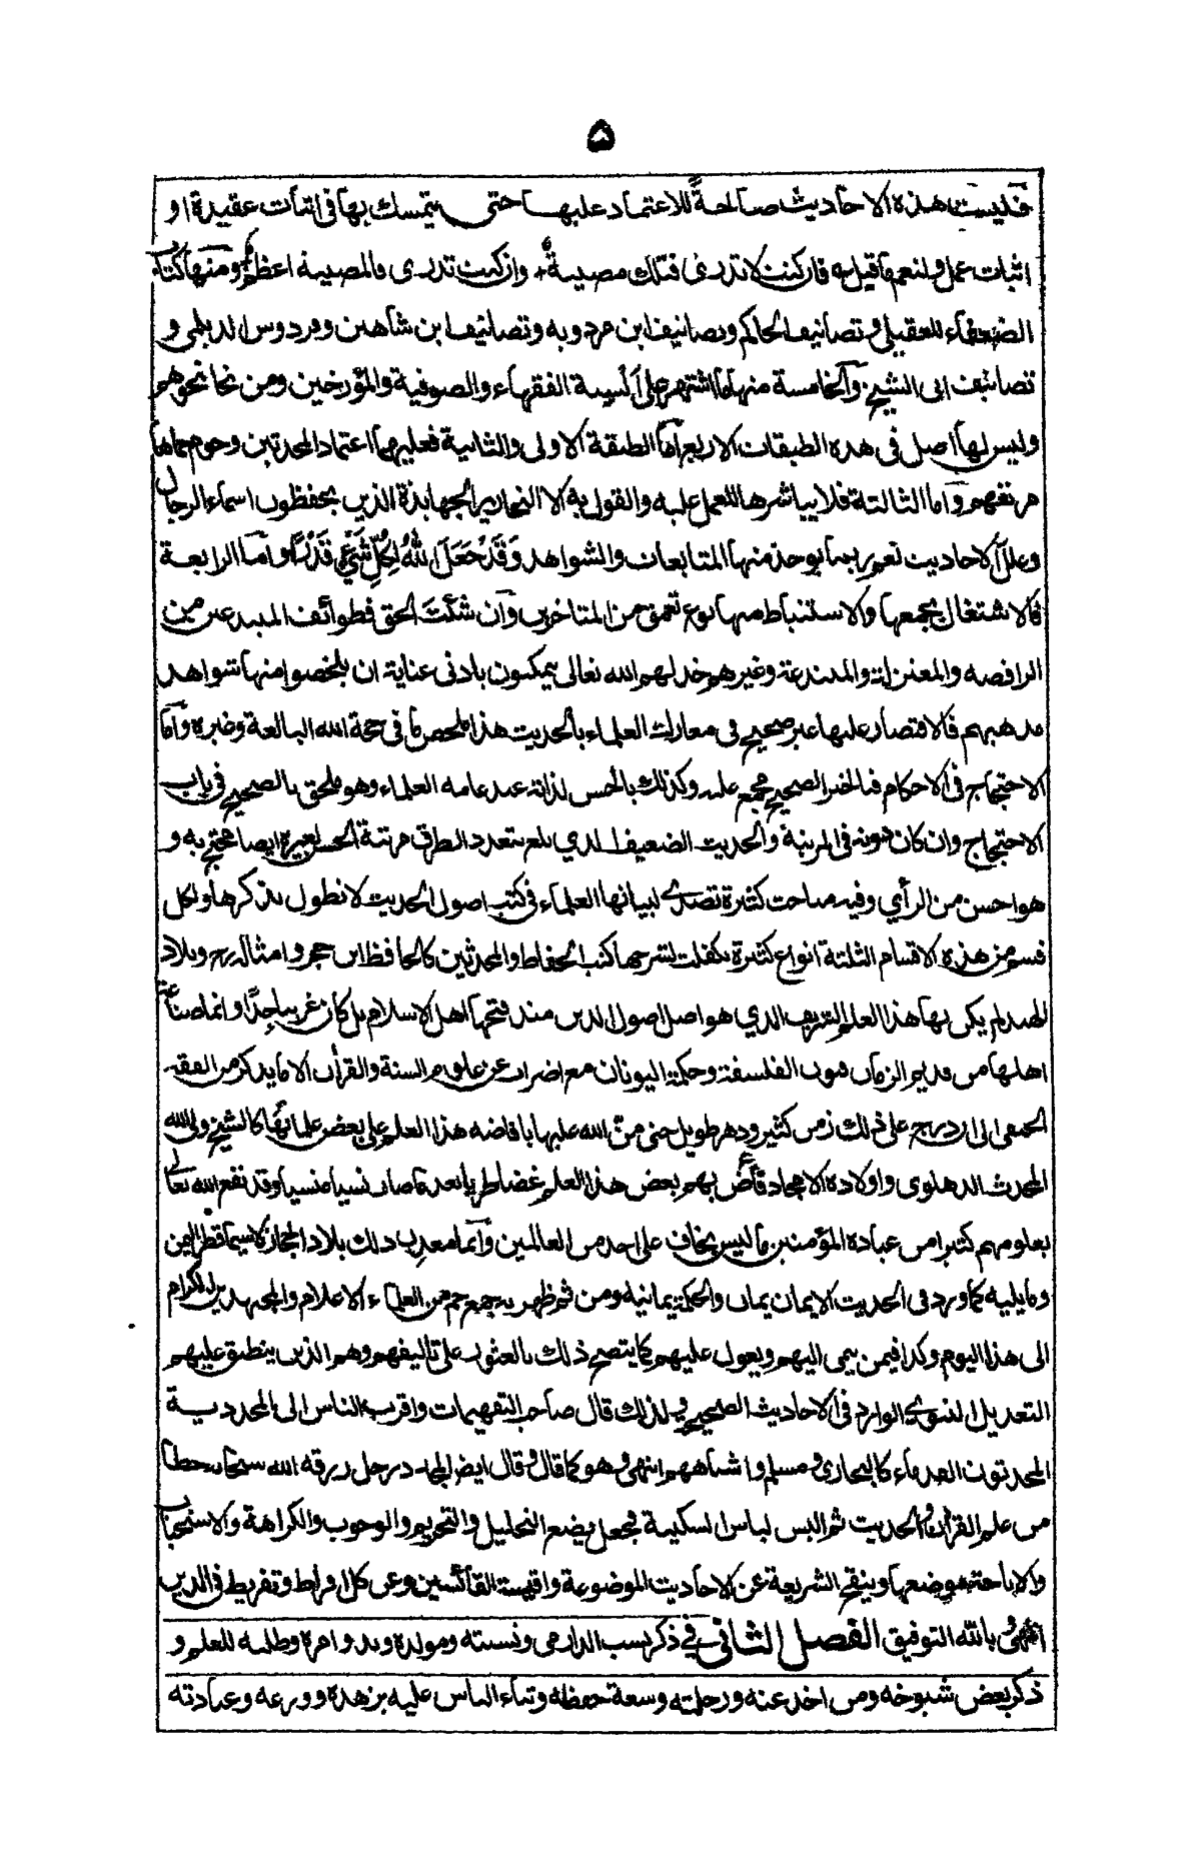 ۵
فليست هذه الاحاديث صالحةً للاعتماد عليها حتى يتمسك بها فى اثبات عقيدة او
اثبات عمل ولنعم ما قيل ه فان كنت لا تدرى فتلك مصيبةٌ وان كنت تدرى فالمصيبة اعظمُ ومنها كتاب
الضعفاء للعقيلى وتصانيف الحاكم وتصانيف ابن مردويه وتصانيف ابن شاهين وفردوس الديلمى و
تصانيف ابى الشيخ وآلخامسة منها ما اشتهر على السنة الفقهاء والصوفية والمؤرخين ومن نحا نحوهم
وليس لها اصل فى هذه الطبقات الاربع آما الطبقة الاولى والثانية فعليهما اعتماد المحدثين وحوم حماها
مرتعهم وآما الثالثة فلا يباشرها للعمل عليه والقول به الا النحارير الجهابذة الذين يحفظون اسماء الرجال
وعلل الاحاديث نعم ربما يوخذ منها المتابعات والشواهد وَقَدْ جَعَلَ اللهُ لِكُلِّ شَيْءٍ قَدْرًا وآما الرابعة
فالاشتغال بجمعها والاستنباط منها نوع تعمق من المتاخرين وآن شئت الحق فطوائف المبتدعين من
الرافضه والمعتزلة والمبتدعة وغيرهم خذلهم الله تعالى يتمكنون بادنى عناية ان يلخصوا منها شواهد
مذهبهم فالاقتصار عليها غير صحيح فى معارك العلماء بالحديث هذا ملخص ما فى حجة الله البالغة وغيره وآما
الاحتجاج فى الاحكام فبالخبر الصحيح مجمع عليه وكذلك بالحسن لذاته عند عامه العلماء وهو ملحق بالصحيح فى باب
الاحتجاج وان كان دونه فى المرتبة والحديث الضعيف الذي بلغ بتعدد الطرق مرتبة الحسن لغيره ايضا محتج به و
هو احسن من الرأي وفيه مباحث كثيرة تصدى لبيانها العلماء فى كتب اصول الحديث لا نطول بذكرها ولكل
قسم من هذه الاقسام الثلثة انواع كثيرة تكفلت لشرحها كتب الحفاظ والمحدثين كالحافظ ابن حجر وامثاله رح وبلاد
الهند لم يكن بها هذا العلم الشريف الذي هو اصل اصول الدين منذ فتحها اهل الاسلام بل كان غريبا جدًا وانما صناعة
اهلها من قديم الزمان فنون الفلسفة وحكمة اليونان مع اضراب عن علوم السنة والقرأن الا ما يذكر من الفقه
الحنفى الى ان درج على ذلك زمن كثير ودهر طويل حتى منّ الله عليها بافاضه هذا العلم على بعض علمائها كالشيخ ولى الله
المحدث الدهلوى واولاده الامجاد فآض بهم بعض هذا العلم غضا طريا بعد ما صار نسيا منسيا وقد نفع الله تعالى
بعلومهم كثيرا من عباده المؤمنين ما ليس بخاف على احد من العالمين وآنما معدن ذلك بلاد الحجاز لا سيما قطر اليمن
وما يليه كما ورد فى الحديث الايمان يمان والحكمة يمانيه ومن ثم ظهر به جمع جم من العلماء الاعلام والمجتهدين الكرام
الى هذا اليوم وكذا فيمن ينمى اليهم ويعول عليهم كما يتضح ذلك بالعثور على تاليفهم وهم الذين ينطبق عليهم
التعديل النبوي الوارد فى الاحاديث الصحيحة ولذلك قال صاحب التفهيمات واقرب الناس الى المجددية
المحدثون القدماء كالبخارى ومسلم واشباههم انتهى وهو كما قال وقال ايضا المجدد رجل رزقه الله سبحانه حظا
من علم القران والحديث ثم البس لباس السكينة فجعل يضع التحليل والتحريم والوجوب والكراهة والاستحباب
والاباحة موضعها وينقح الشريعة عن الاحاديث الموضوعة واقيسة القائسين وعن كل افراط وتفريط فى الدين
انتهى وبالله التوفيق الفصل الثانى فى ذكر نسب الدارمى ونسبته ومولده وبدو امره وطلبه للعلم و
ذكر بعض شيوخه ومن اخذ عنه ورحلته وسعة حفظه وثناء الناس عليه بزهده وورعه وعبادته